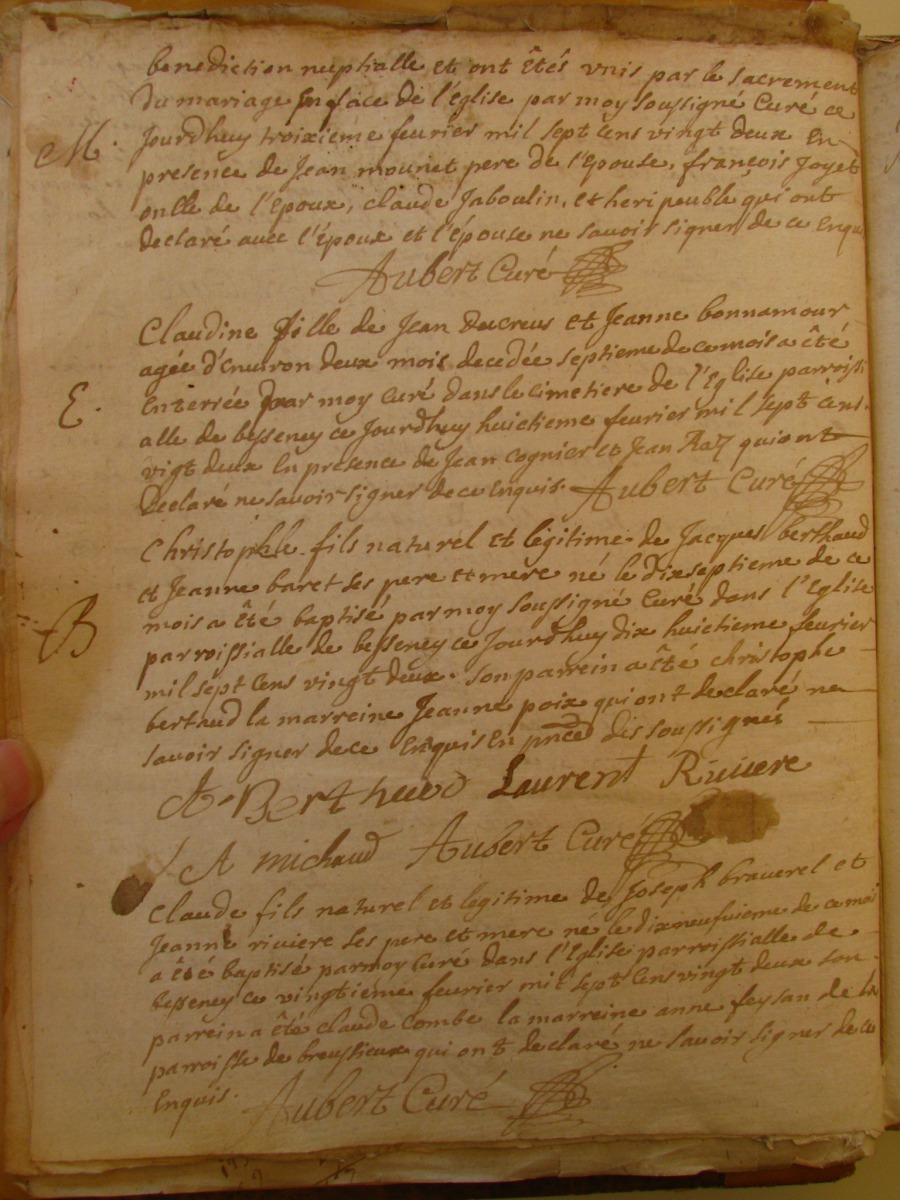 benediction nuptialle et ont êtés unis par le sacrement
du mariage en face de l'église par moy soussigné Curé ce
M. jourdhuy troixieme feurier mil sept cens vingt deux En
presence de Jean mounet pere de l'Epouse, françois Joyet
onlle de l'époux, claude Jaboulin, et heri peuble qui ont
declaré auec l'époux et l'épouse ne sauoir signer de ce Enquis
Aubert Curé
Claudine fille de Jean ducreus et Jeanne bonnamour
agée d'enuiron deux mois decedée septieme de ce mois a êté
E. Enterrée par moy Curé dans le cimetiere de l'Eglise parroissi
alle de besseney ce jourdhuy huictieme feurier mil sept cens
vigt deux En presence de Jean Cognier et Jean qui ont
declaré ne sauoir signer de ce Enquis. Aubert Curé
Christophle fils naturel et légitime de Jacques berthaud
et Jeanne baret ses pere et mere né le dixseptieme de ce
B mois a êté baptisé par moy soussigné Curé dans l'Eglise
parroissialle de besseney ce Jourdhuy dix huictieme feurier
mil sept Cens vingt deux. son parrein a êté christophe
bertaud la marreine Jeanne poix qui ont declaré ne
sauoir signer de ce Enquis En pnce des soussignés
A. Berthaud Laurent Riuiere
A michaud Aubert Curé
Claude fils naturel et legitime de Joseph brauerel et
Jeanne riuiere ses pere et mere né le dixneufuieme de ce mois
a êté baptisé par moy Curé dans l'Eglise parroissialle de
besseney ce vingtieme feurier mil sept Cens vingt deux son
parrein a êté claude Combe la marreine anne feysan de la
parroisse de broussieux qui ont declaré ne sauoir signer de ce
Enquis. Aubert Curé